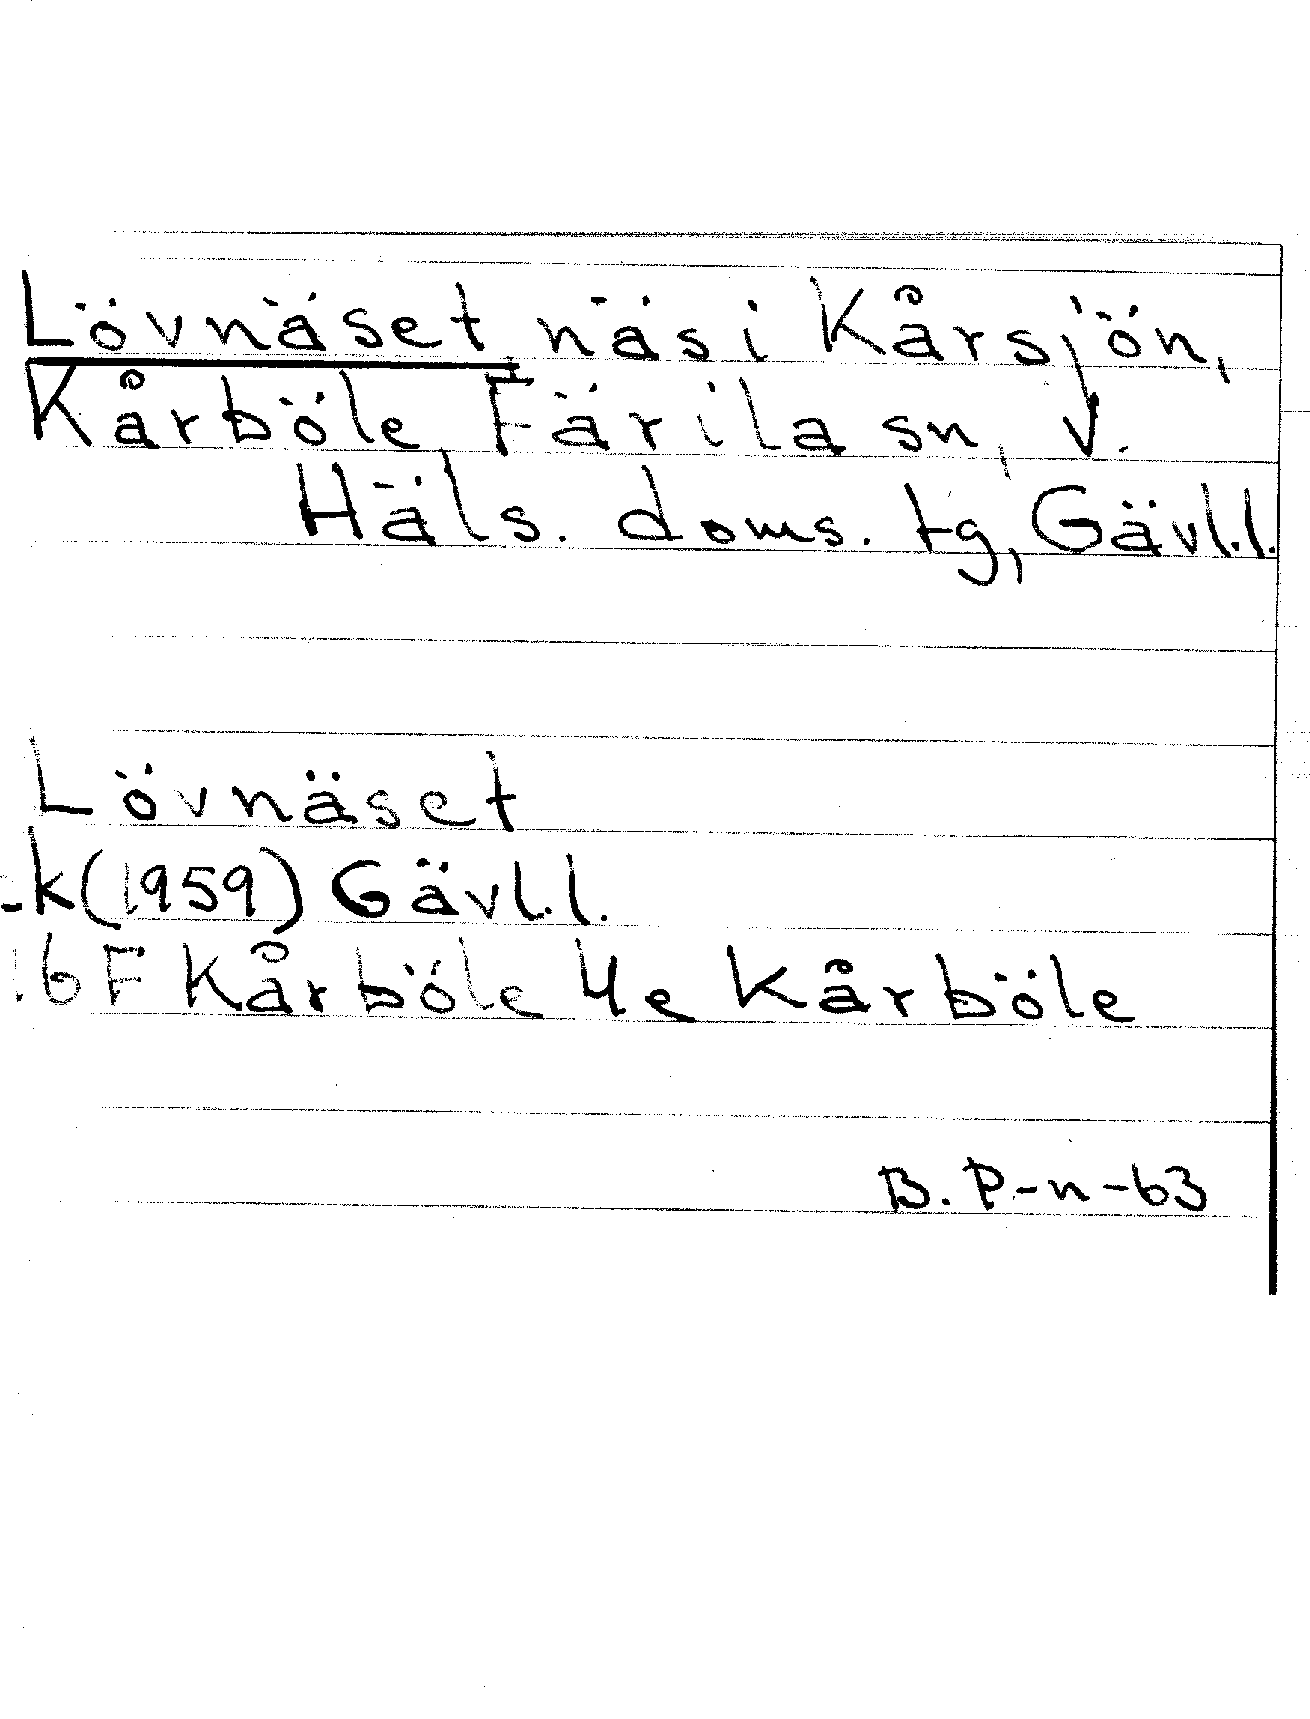 Lövnäset, näs i Kårsjön,
Kårböle, Färila sn, V.
Häls. doms. tg, Gävl.l.
Lövnäset
-k (1959) Gävl.l.
16 F Kårböle 4e Kårböle
B. P-n -63